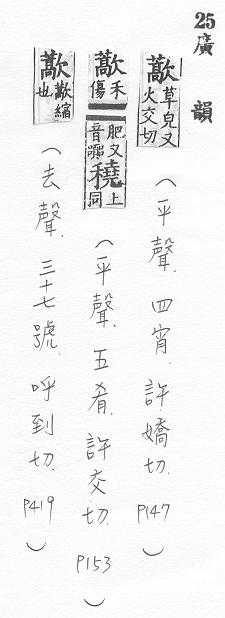 25廣韻
藃草皃又火交切（平聲.四宵.許嬌切.P147）
藃禾傷肥又音嚻穘上同（平聲.五肴.許交切.P153）
藃藃縮也（去聲.三十七號.呼到切.P419）